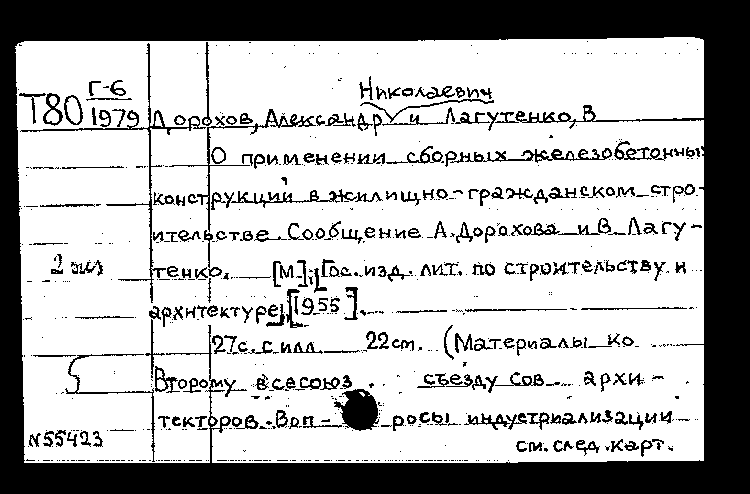 Николаевич
Т80 Г-6
1979 Дорохов, Александр и Лагутенко, В
О применении сборных железобетонных
конструкций в жилищно-гражданском стро-
ительстве. Сообщение А.Дорохова и В. Лагу-
2 экз тенко. [М], [Гос. изд. лит. по строительству и
архитектуре], [1955].
27с. с илл. 22см. (Материалы ко
Второму всесоюз. съезду сов. архи-
текторов. Воп- росы индустриализации
N55423 см. след. карт.